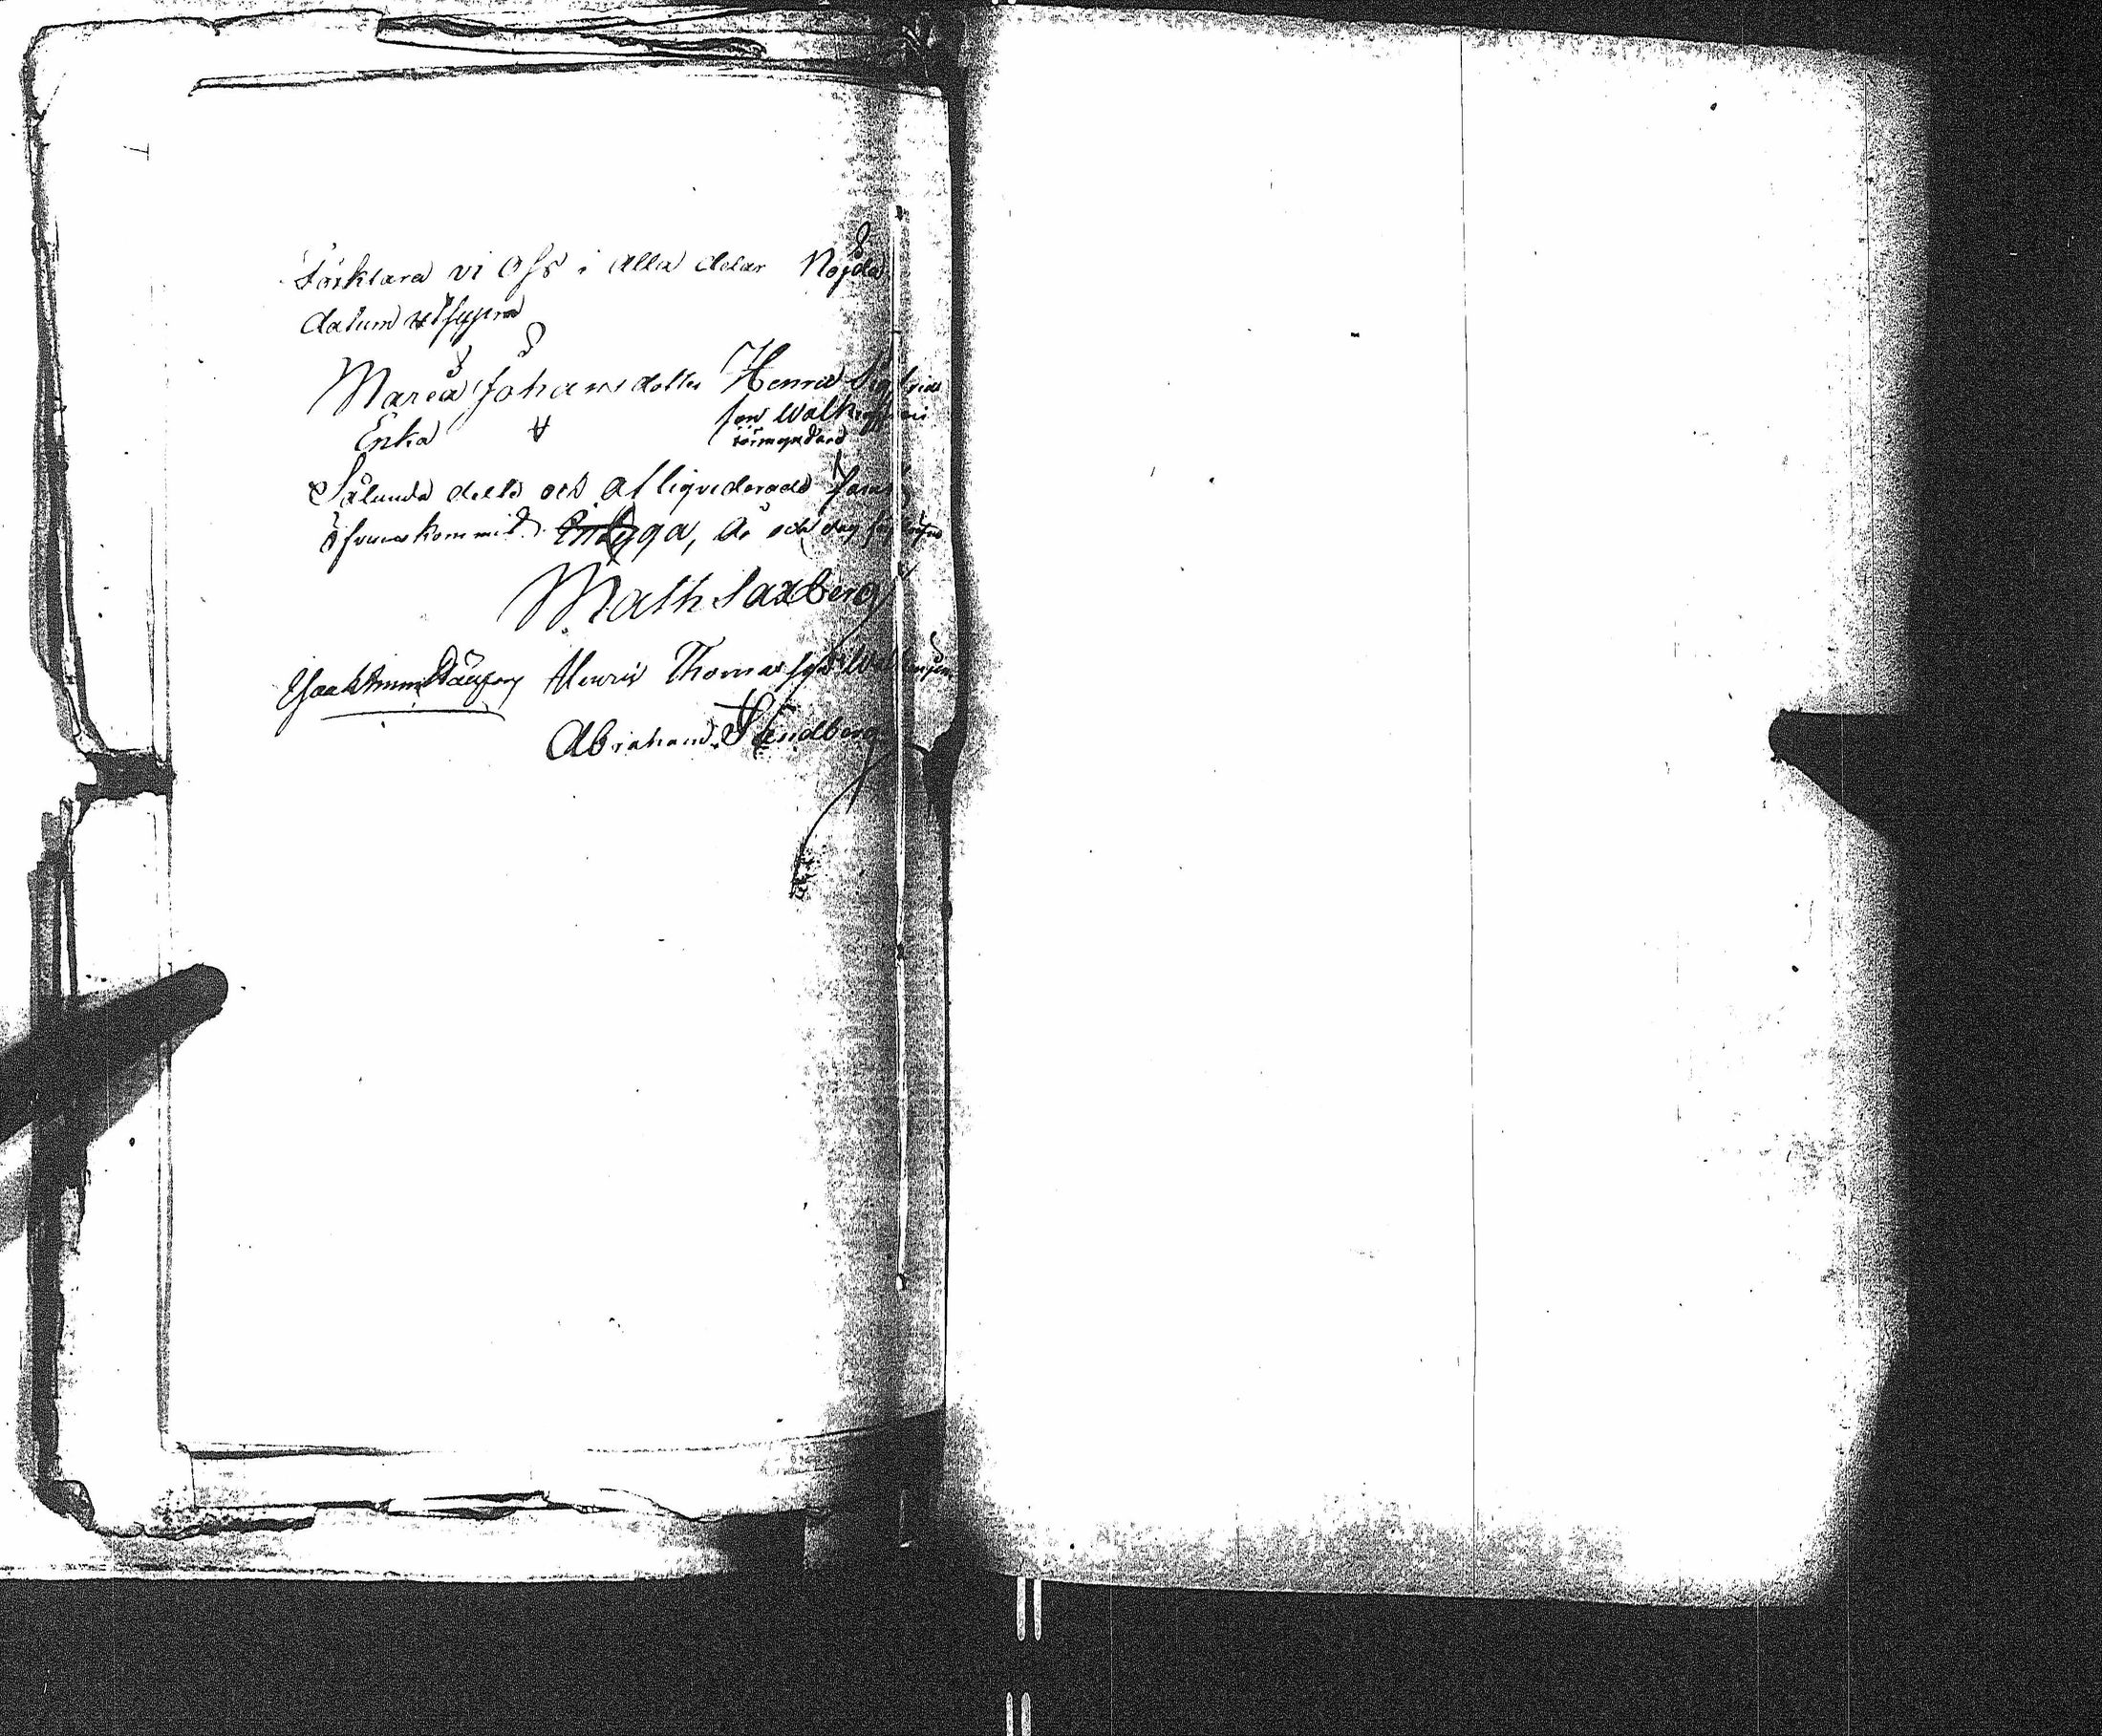 Förklara vi Oss i alla delar Nöjda
datum utsupra
Maria Johansdotter Henric Sigfrids
Enka son
förmyndare
Sålunda delt och afliqviderade
öfverenskommit. Intyga, År och dag
Math Saxberg
Henric Thomasson
Abraham Sandberg